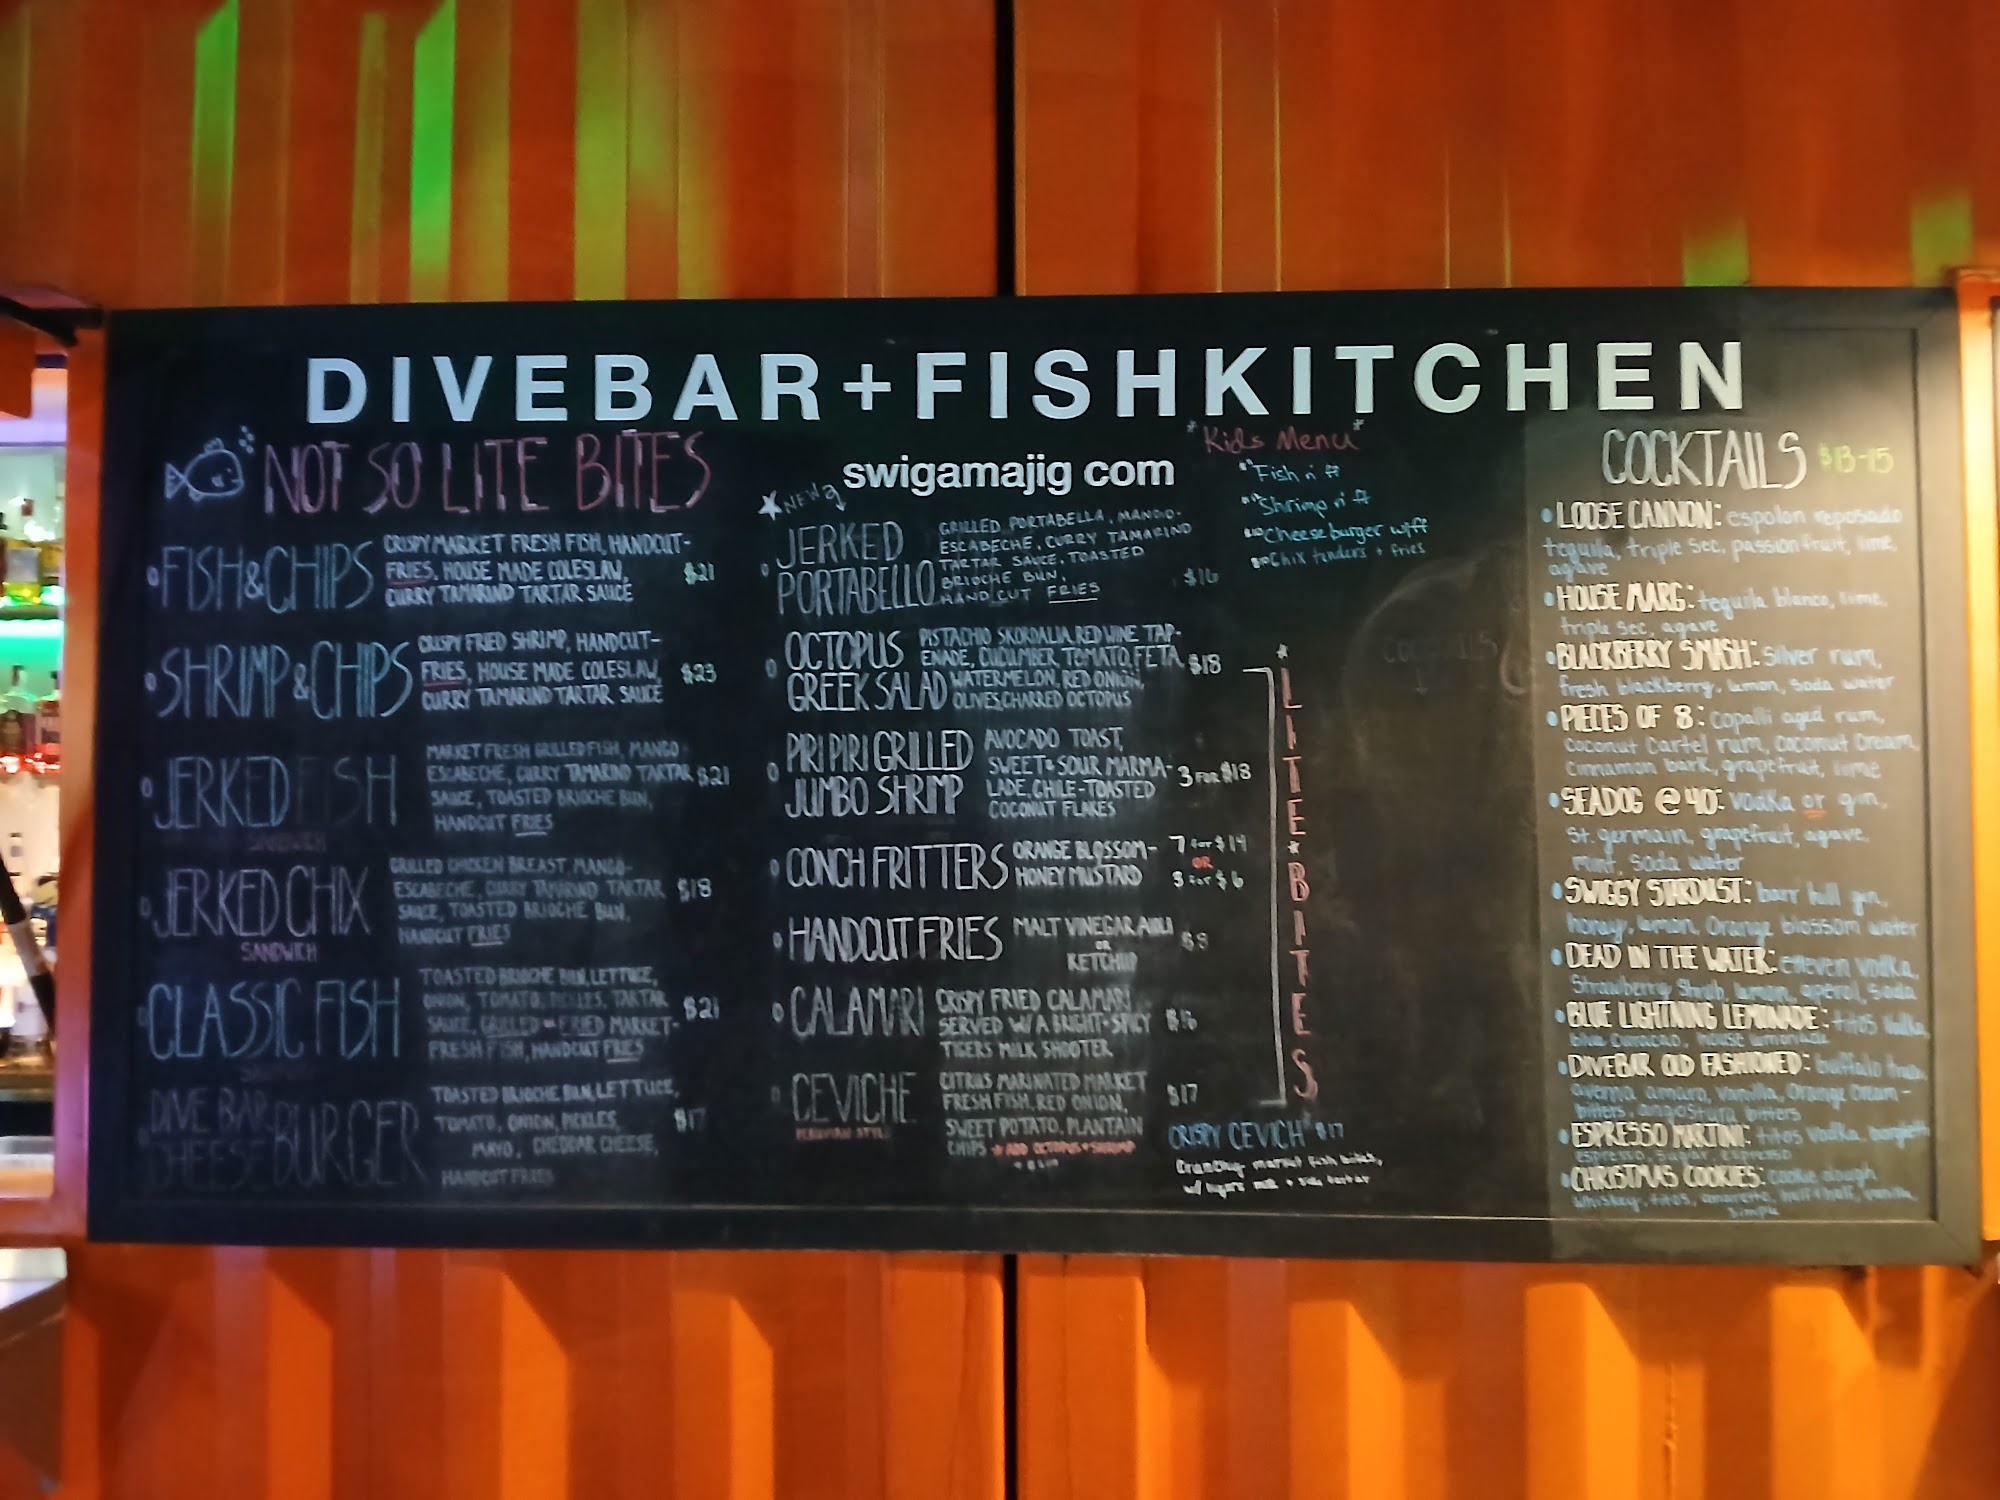 DIVEBAR+FISHKITCHEN
swigamajig com
NOT SO LITE BITES
FISH & CHIPS
CRISPY MARKET FRESH FISH, HANDCUT-
FRIES, HOUSE MADE COLESLAW,
CURRY TAMARIND TARTAR SAUCE
$21
SHRIMP & CHIPS
CRISPY FRIED SHRIMP, HANDCUT-
FRIES, HOUSE MADE COLESLAW,
CURRY TAMARIND TARTAR SAUCE
$23
JERKED FISH
SANDWICH
MARKET FRESH GRILLED FISH, MANGO-
ESCABECHE, CURRY TAMARIND TARTAR
SAUCE, TOASTED BRIOCHE BUN,
HANDCUT FRIES
$21
JERKED CHIX
SANDWICH
GRILLED CHICKEN BREAST, MANGO-
ESCABECHE, CURRY TAMARIND TARTAR
SAUCE, TOASTED BRIOCHE BUN,
HANDCUT FRIES
$18
CLASSIC FISH
SANDWICH
TOASTED BRIOCHE BUN, LETTUCE,
ONION, TOMATO, PICKLES, TARTAR
SAUCE, GRILLED OR FRIED MARKET-
FRESH FISH, HANDCUT FRIES
$21
DIVE BAR
CHEESE BURGER
TOASTED BRIOCHE BUN, LETTUCE,
TOMATO, ONION, PICKLES,
MAYO, CHEDDAR CHEESE,
HANDCUT FRIES
$17
NEW
JERKED
PORTABELLO
GRILLED PORTABELLA, MANGO-
ESCABECHE, CURRY TAMARIND
TARTAR SAUCE, TOASTED
BRIOCHE BUN,
HAND CUT FRIES
$16
OCTOPUS
GREEK SALAD
PISTACHIO SKORDALIA, RED WINE TAP-
ENADE, CUCUMBER, TOMATO, FETA
WATERMELON, RED ONION,
OLIVES, CHARRED OCTOPUS
$18
PIRI PIRI GRILLED
JUMBO SHRIMP
AVOCADO TOAST,
SWEET & SOUR MARMA-
LADE, CHILE-TOASTED
COCONUT FLAKES
3 FOR $18
CONCH FRITTERS
ORANGE BLOSSOM-
HONEY MUSTARD
7 for $14
OR
3 for $6
HANDCUT FRIES
MALT VINEGAR AIOLI
or
KETCHUP
$8
CALAMARI
CRISPY FRIED CALAMARI
SERVED W/ A BRIGHT + SPICY
TIGERS MILK SHOOTER
$16
CEVICHE
PERUVIAN STYLE
CITRUS MARINATED MARKET
FRESH FISH, RED ONION,
SWEET POTATO, PLANTAIN
CHIPS * ADD OCTOPUS + SHRIMP
$17
LITE * BITES
CRISPY CEVICH $17
Crunchy market fish bites,
w/ tigers milk + side tartar
Kids Menu
Fish n' ff
Shrimp n' ff
Cheeseburger w/ff
Chix tenders + fries
COCKTAILS
COCKTAILS $13-15
LOOSE CANNON: espolon reposado
tequila, triple sec, passion fruit, lime,
agave
HOUSE MARG: tequila blanco, lime,
triple sec, agave
BLACKBERRY SMASH: Silver rum,
fresh blackberry, lemon, soda water
PIECES OF 8: Copalli aged rum,
Coconut Cartel rum, coconut cream,
cinnamon bark, grapefruit, lime
SEADOG @ 40: vodka or gin,
St. germain, grapefruit, agave,
mint, soda water
SWIGGY STARDUST: barr hill gin,
honey, lemon, Orange blossom water
DEAD IN THE WATER: effeven vodka,
Strawberry Shrub, lemon, aperol, soda
BLUE LIGHTNING LEMONADE: titos vodka,
blue curacao, house lemonade
DIVEBAR OLD FASHIONED: buffalo trace,
averna amaro, vanilla, Orange Cream-
bitters, angostura bitters
ESPRESSO MARTINI: titos vodka,
espresso, sugar, espresso
CHRISTMAS COOKIES: cookie dough
whiskey, titos, amaretto, half + half, vanilla
simple